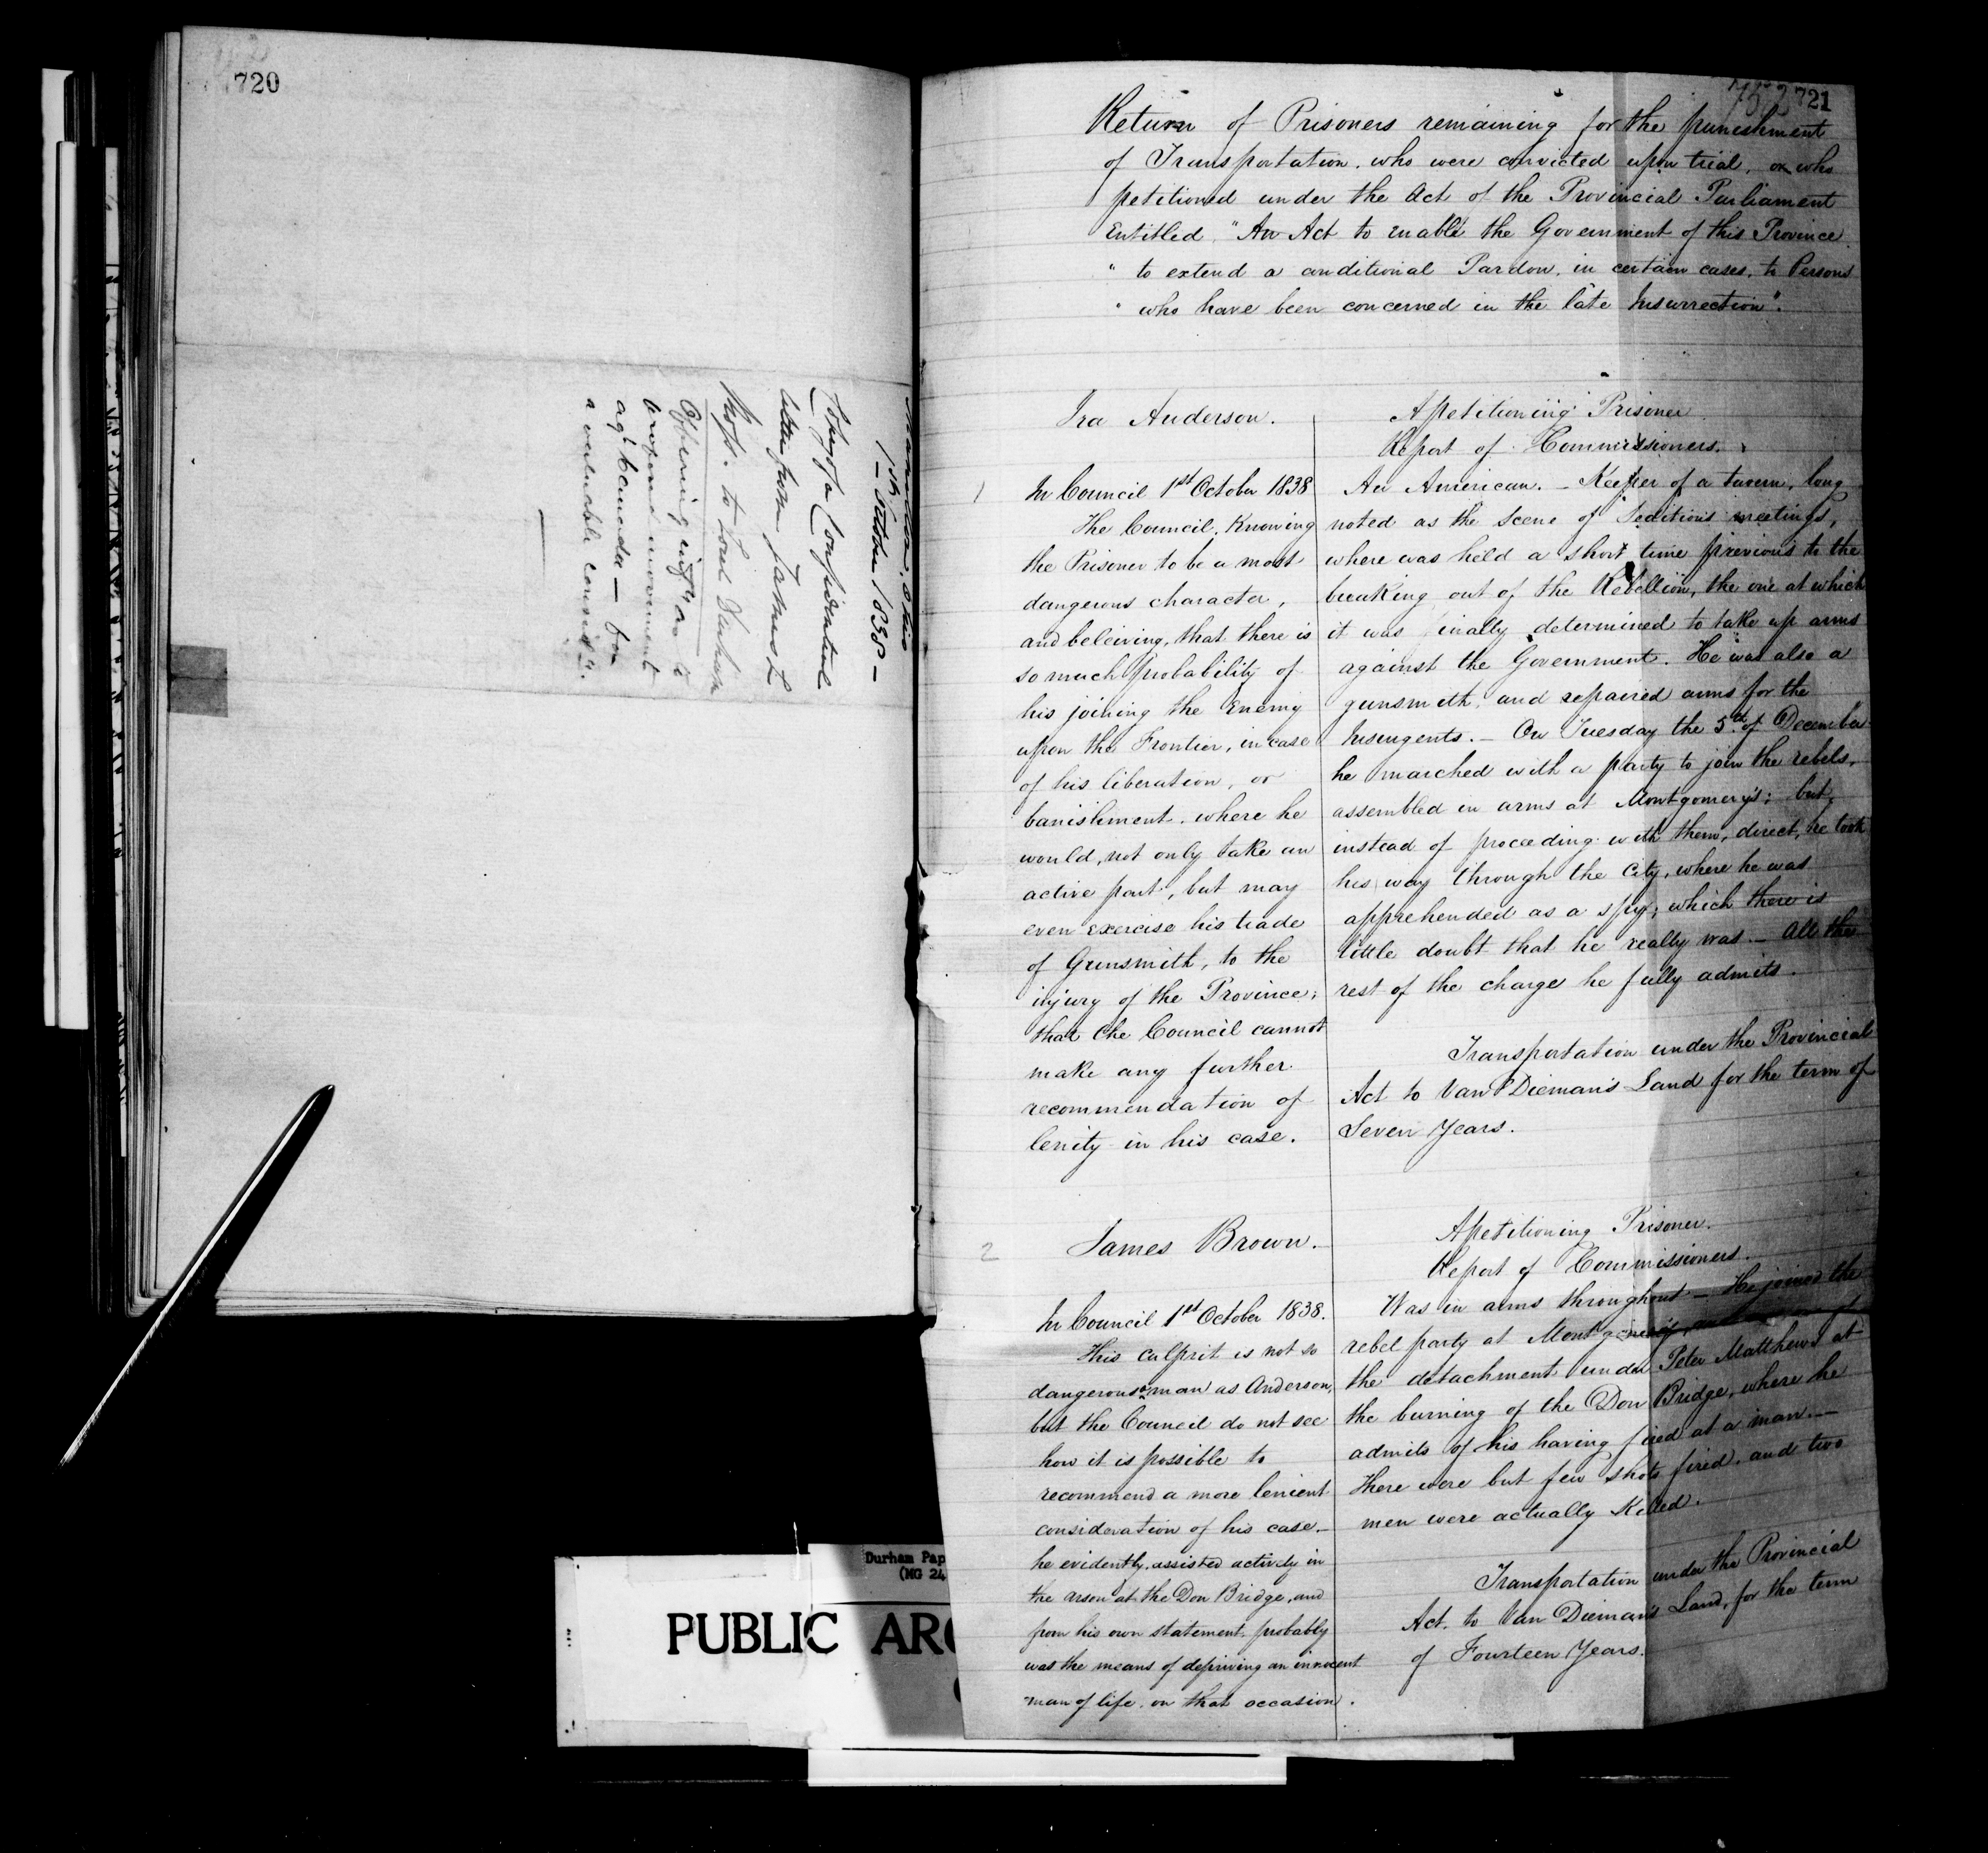 720
1st October 1838 –
Copy of a Confidential
letter from James L
to Lord Durham
Offering inf.n as to
proposed movement
ag.t Canada — for
a valuable consid.n
721
Return of Prisoners remaining for the punishment
of Transportation, who were convicted upon trial, or who
petitioned under the Act of the Provincial Parliament
Entitled, "An Act to enable the Government of this Province
" to extend a conditional Pardon, in certain cases, to Persons
" who have been concerned in the late Insurrection".
Ira Anderson.
1
In Council 1st October 1838
The Council, Knowing
the Prisoner to be a most
dangerous character,
and beleiving, that there is
so much probability of
his joining the Enemy
upon the Frontier, in case
of his liberation, or
banishment, where he
would, not only take an
active part, but may
even exercise his trade
of Gunsmith, to the
injury of the Province;
that the Council cannot
make any further
recommendation of
lenity in his case.
A petitioning Prisoner
Report of Commissioners.
An American. – Keeper of a tavern, long
noted as the scene of Seditious meetings,
where was held a short time previous to the
breaking out of the Rebellion, the one at which
it was finally determined to take up arms
against the Government. He was also a
gunsmith, and repaired arms for the
Insurgents. – On Tuesday the 5th of December
he marched with a party to join the rebels,
assembled in arms at Montgomery's; but,
instead of proceeding with them, direct, he took
his way through the City, where he was
apprehended as a spy; which there is
little doubt that he really was – All the
rest of the charge he fully admits.
Transportation under the Provincial
Act to Van Dieman's Land for the term of
Seven Years.
2
James Brown.
In Council 1st October 1838.
This culprit is not so
dangerous a man as Anderson,
but the Council do not see
how it is possible to
recommend a more lenient
consideration of his case –
he evidently assisted actively in
the arson at the Don Bridge, and
from his own statement, probably
was the means of depriving an innocent
man of life, on that occasion.
A petitioning Prisoner.
Report of Commissioners.
Was in arms throughout – He joined the
rebel party at Montgomery's,
the detachment under Peter Matthews at
the burning of the Don Bridge, where he
admits of his having fired at a man. –
There were but few shots fired, and two
men were actually Killed.
Transportation under the Provincial
Act, to Van Dieman's Land, for the term
of Fourteen Years.
Durham Pap
(MG 24
PUBLIC ARC